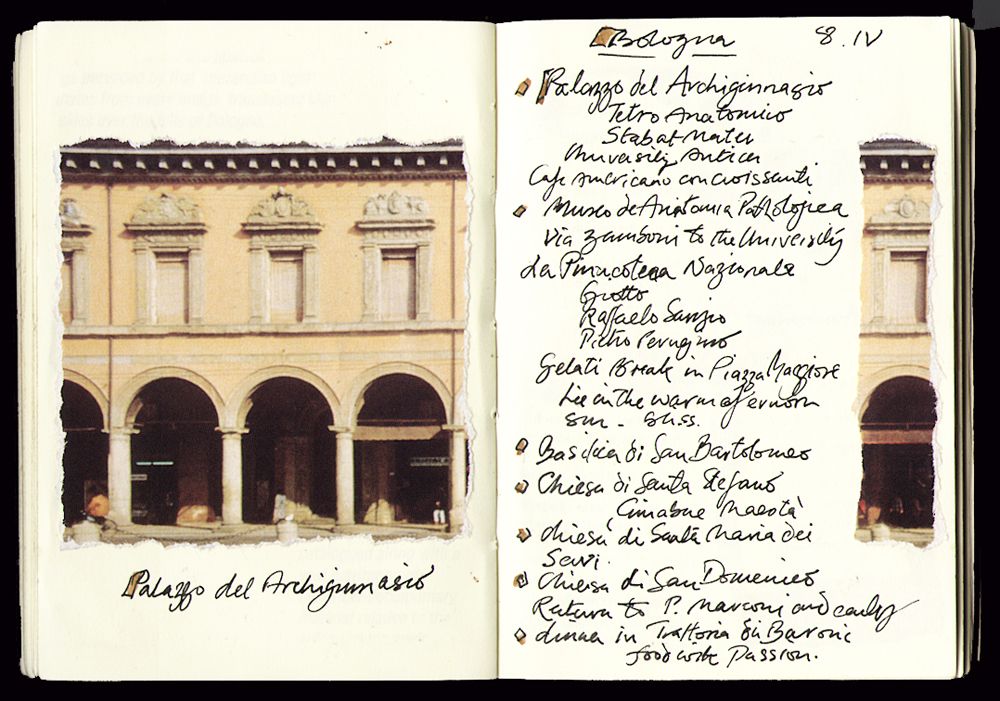 Palazzo del Archiginnasio
Bologna 8.IV
Palazzo del Archiginnasio
Tetro Anatomico
Stabat Mater
University Antica
Cafe Americano con croissanti
Museo de Anatomia Pathologica
Via Zamboni to the University
La Pinacoteca Nazionale
Giotto
Raffaelo Sanzio
Pietro Perugino
Gelati Break in Piazza Maggiore
Lie in the warm afternoon
sun - bliss.
Basilica di San Bartolomeo
Chiesa di Santa Stefano
Cimabue Maestà
Chiesa di Santa Maria dei
Servi.
Chiesa di San Domenico
Return to P. Marconi and early
dinner in Trattoria di Baroni
food with Passion.